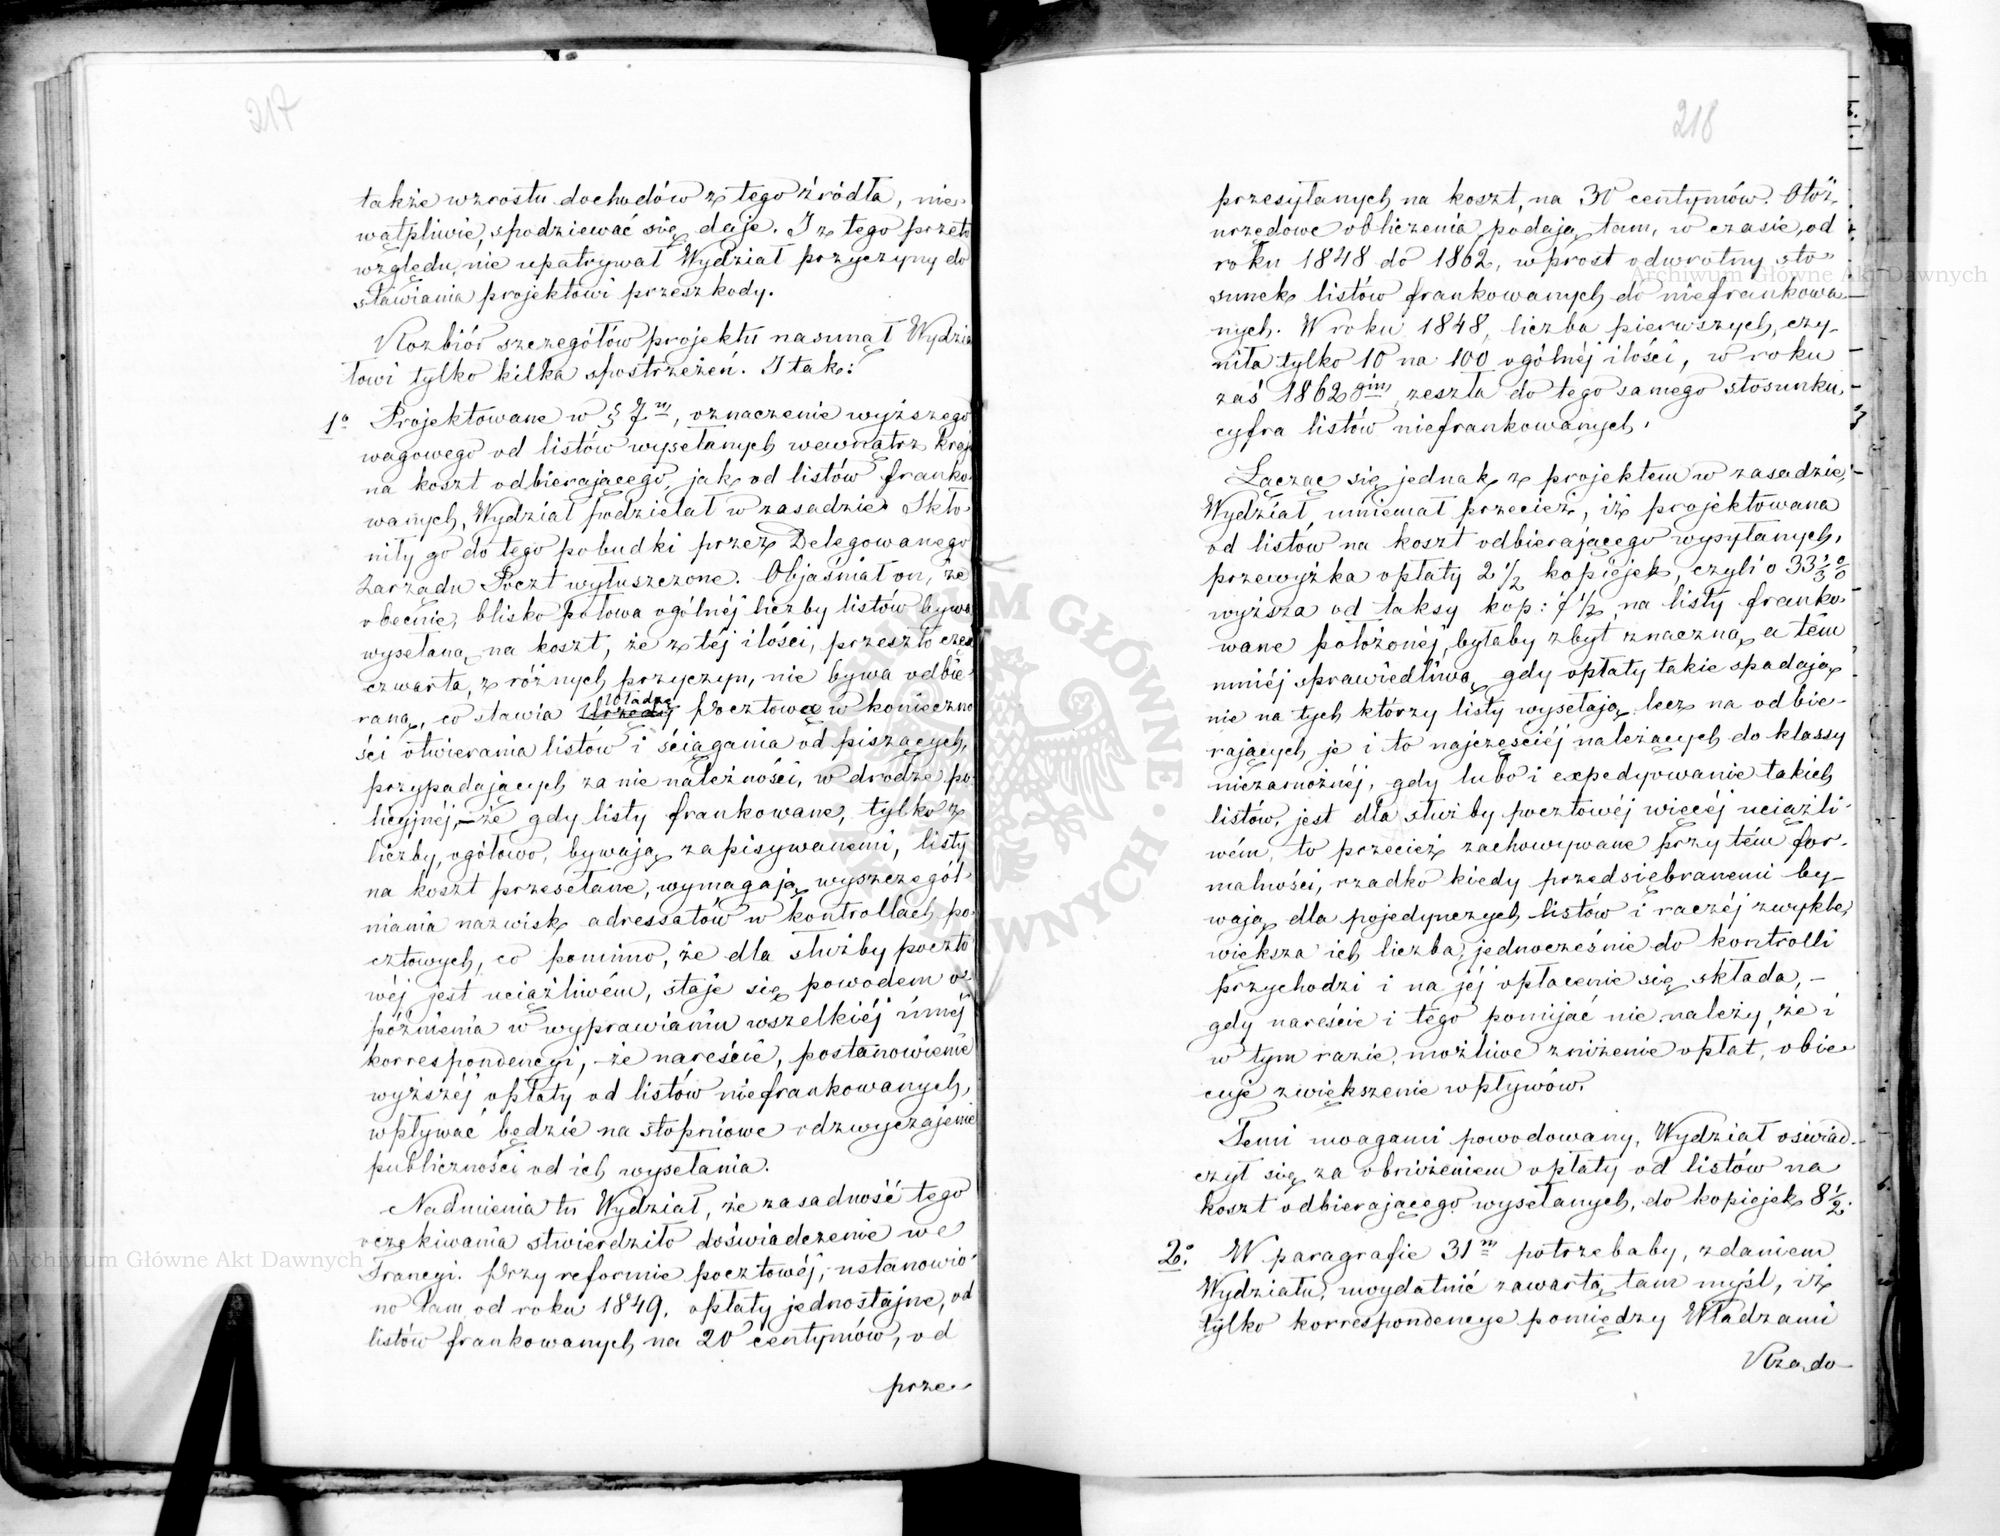 217
także wzrostu dochodów z tego źródła, nie-
wątpliwie, spodziewać się daje. I z tego przeto
względu, nie upatrywał Wydział przyczyny do
stawiania projektowi przeszkody.
Rozbiór szczegółów projektu nasunął Wydzia
łowi tylko kilka spostrzeżeń. I tak:
1º Projektowane w § 7m, oznaczenie wyższego
wagowego od listów wysełanych wewnątrz kraju
na koszt odbierającego, jak od listów franko-
wanych, Wydział podzielał w zasadzie. Skło-
niły go do tego pobudki przez Delegowanego
Zarządu Poczt wyłuszczone. Objaśniał on, że
obecnie, blisko połowa ogólnéj liczby listów bywa
wysełaną na koszt, że z téj ilości, przeszło część
czwarta, z różnych przyczyn, nie bywa odbie-
raną, co stawia Urzędy Władzę Pocztową w konieczno
ści otwierania listów i ściągania od piszących,
przypadających za nie należności, w drodze po-
licyjnéj, – że gdy listy frankowane, tylko z
liczby, ogółowo, bywają zapisywanemi, listy
na koszt przesełane, wymagają wyszczegól-
niania nazwisk adressatów w kontrollach po-
cztowych, co pomimo, że dla służby poczto
wéj jest uciążliwém, staje się powodem o-
późnienia w wyprawianiu wszelkiéj innéj
korrespondencyi, – że nareście, postanowienie
wyższéj opłaty od listów niefrankowanych,
wpływać będzie na stopniowe odzwyczajenie
publiczności od ich wysełania.
Nadmienia tu Wydział, że zasadność tego
oczekiwania stwierdziło doświadczenie we
Francyi. Przy reformie pocztowéj, ustanowio-
no tam, od roku 1849, opłaty jednostajne, od
listów frankowanych na 20 centymów, od
prze-
218
przesyłanych na koszt, na 30 centymów. Otóż
urzędowe obliczenia podają tam, w czasie, od
roku 1848 do 1862, wprost odwrotny sto
sunek listów frankowanych do niefrankowa-
nych. W roku 1848, liczba pierwszych, czy-
niła tylko 10 na 100 ogólnéj ilości, w roku
zaś 1862gim, zeszła do tego samego stosunku,
cyfra listów niefrankowanych.
Łącząc się jednak z projektem w zasadzie,
Wydział mniemał przecież, iż projektowana
od listów na koszt odbierającego wysyłanych,
przewyżka opłaty 2 1/2 kopiejek, czyli o 33 1/3 %
wyższa od taksy kop: 7 1/2 na listy franko-
wane położonéj, byłaby zbyt znaczną, a tém
mniéj sprawiedliwą, gdy opłaty takie spadają
nie na tych którzy listy wysełają, lecz na odbie-
rających je i to najczęściéj należących do klassy
niezamożnéj, gdy lubo i expedyowanie takich
listów, jest dla służby pocztowéj więcéj uciążli-
wém, to przecież zachowywane przy tém for-
malności, rzadko kiedy przedsiębranemi by-
wają dla pojedynczych listów i raczéj zwykle,
większa ich liczba, jednocześnie do kontrolli
przychodzi i na jéj opłacenie się składa, –
gdy nareście i tego pomijać nie należy, że i
w tym razie, możliwe zniżenie opłat, obie-
cuje zwiększenie wpływów.
Temi uwagami powodowany, Wydział oświad-
czył się za obniżeniem opłaty od listów na
koszt odbierającego wysełanych, do kopiejek 8 1/2.
2º. W paragrafie 31m potrzebaby, zdaniem
Wydziału, uwydatnić zawartą tam myśl, iż
tylko korrespondencye pomiędzy Władzami
Rządo-
Archiwum Główne Akt Dawnych
Archiwum Główne Akt Dawnych
ARCHIWUM GŁÓWNE AKT DAWNYCH